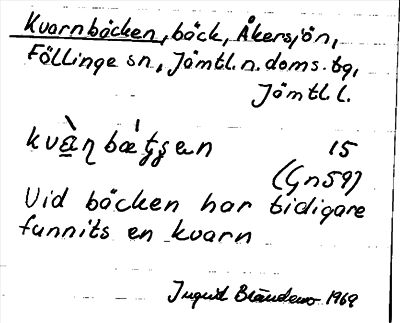 Kvarnbäcken, bäck, Åkersjön,
Föllinge sn, Jämtl. n. doms. tg,
Jämtl. l.
15
(Gn59)
Vid bäcken har tidigare
funnits en kvarn
Ingrid 1969